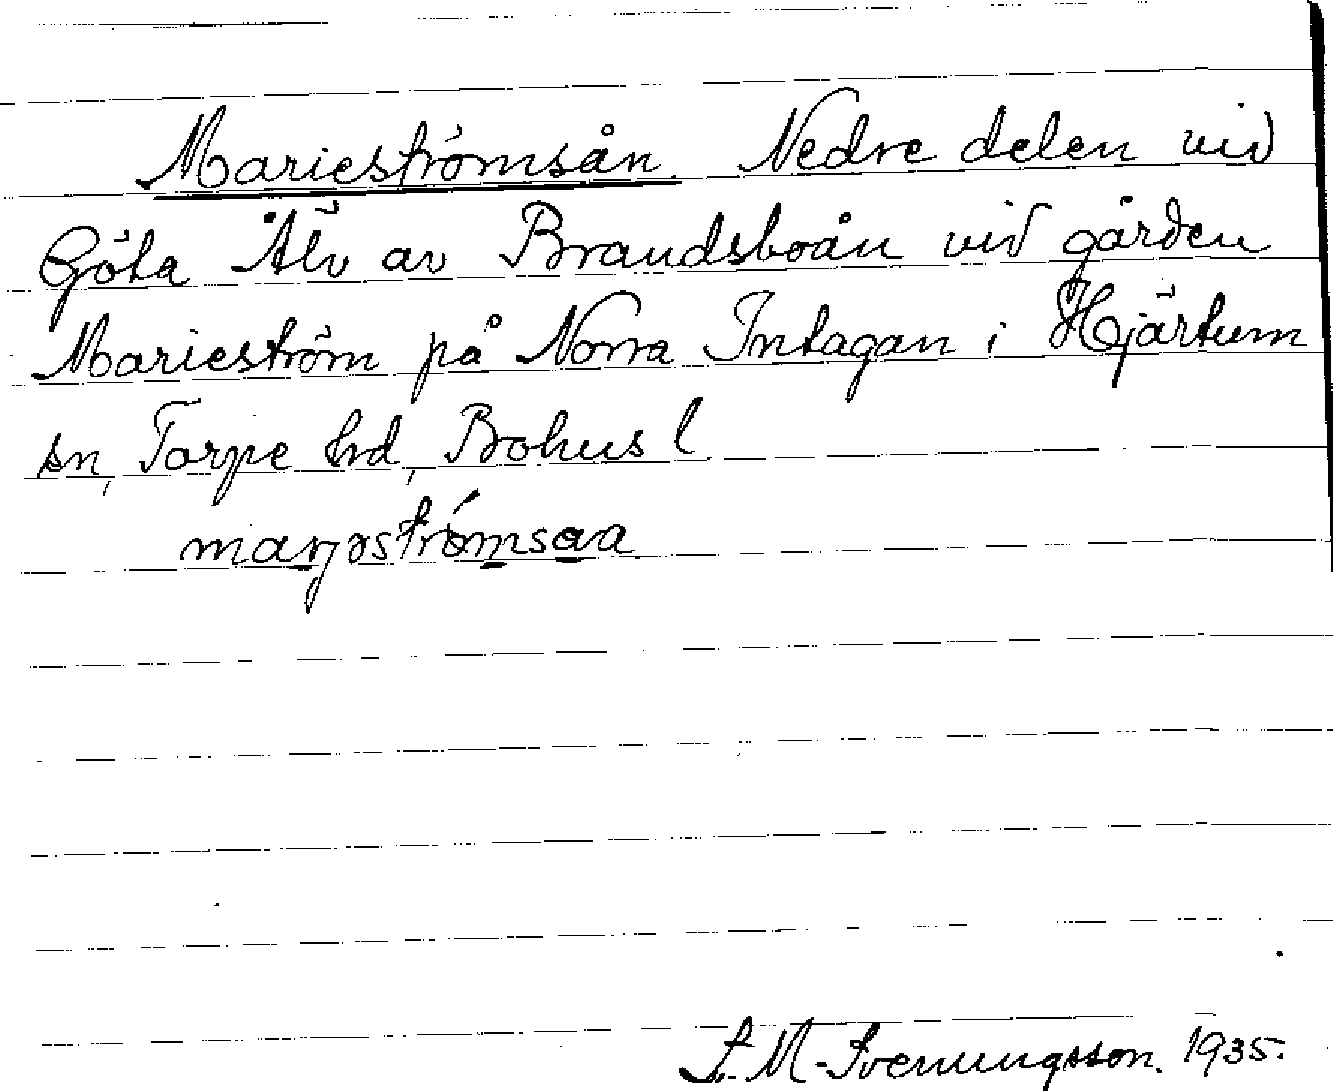 Marieströmsån. Nedre delen vid
Göta Älv av Brandsboån vid gården
Marieström på Norra Intagan i Hjärtum
sn, Torpe hrd, Bohus l
S. M. Svenungsson. 1935.